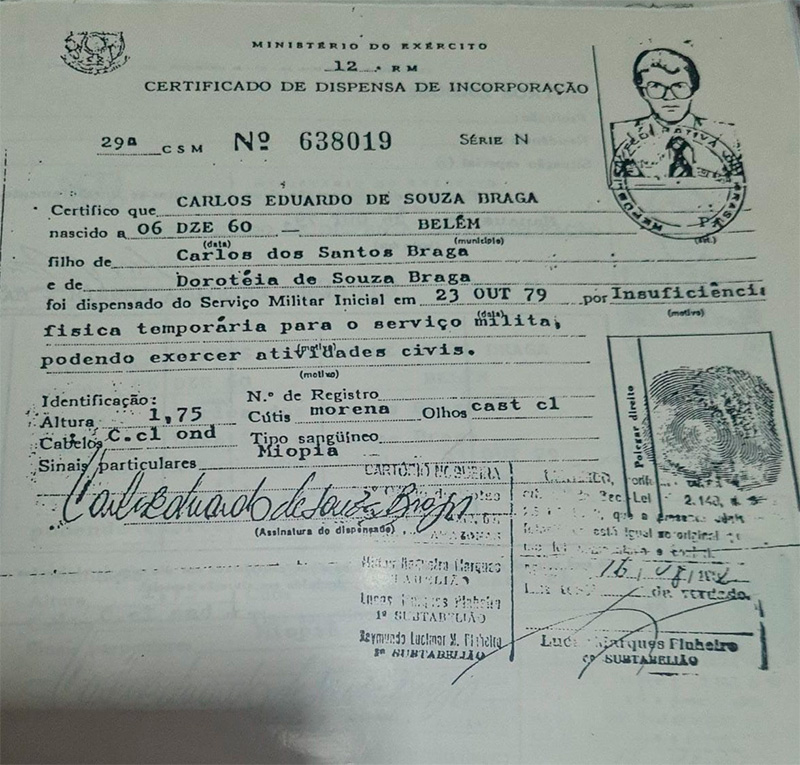 MINISTÉRIO DO EXÉRCITO
12 ª RM
CERTIFICADO DE DISPENSA DE INCORPORAÇÃO
29ª CSM Nº 638019 SÉRIE N
Certifico que CARLOS EDUARDO DE SOUZA BRAGA
nascido a 06 DZE 60 — BELÉM
(data) (município) (est.)
filho de Carlos dos Santos Braga
e de Dorotéia de Souza Braga
foi dispensado do Serviço Militar Inicial em 23 OUT 79 por Insuficiênci
(data) (motivo)
fisica temporária para o serviço milita,
podendo exercer atividades civis.
(motivo)
(motivo)
Polegar direito
Identificação: N.º de Registro
Altura 1,75 Cútis morena Olhos cast cl
Cabelos C.cl ond Tipo sangüíneo
Sinais particulares Miopia
CARTÓRIO NOGUEIRA
Carlos Eduardo de Souza Braga
(Assinatura do dispensado)
AMAZONAS
Nogueira Marques
TABELIÃO
Lucas Marques Pinheiro
1º SUBTABELIÃO
Raymundo Lucimar M. Pinheiro
2º SUBTABELIÃO
2.148,
está igual ao original
da verdade.
Marques Pinheiro
SUBTABELIÃO